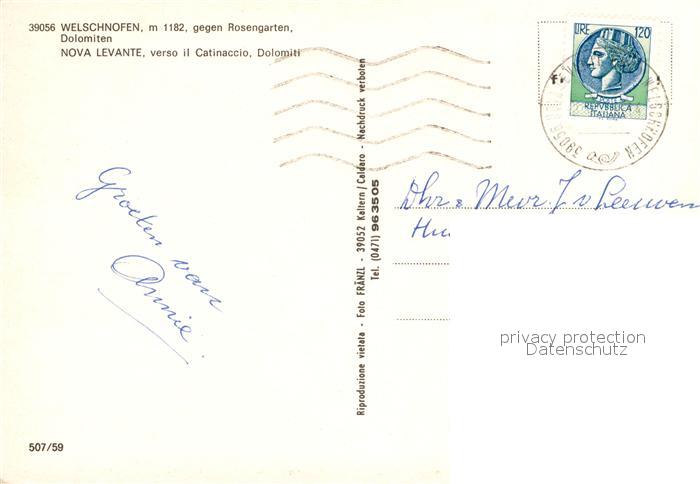 39056 WELSCHNOFEN, m 1182, gegen Rosengarten,
Dolomiten
NOVA LEVANTE, verso il Catinaccio, Dolomiti
LIRE 120
REPVBBLICA
ITALIANA
39056
WELSCHNOFEN
Groeten van
Annie.
Dhr & Mevr. J v Leeuwen
Riproduzione vietata - Foto FRÄNZL - 39052 Kaltern / Caldaro - Nachdruck verboten
Tel. (0471) 963505
privacy protection
Datenschutz
507/59